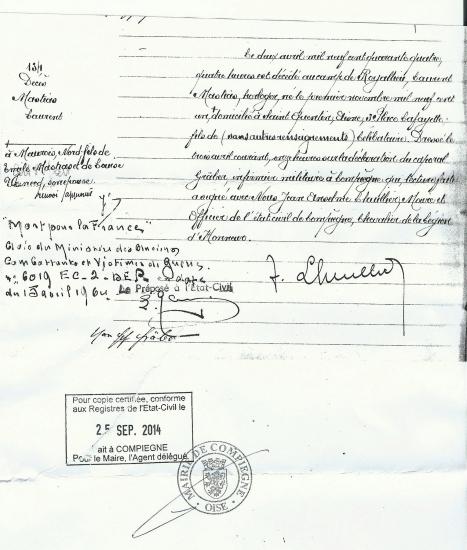 131
Décès
Mastias
Laurent
à Maurois, Nord fils de
Emile Mastias et de Louise
Le deux avril mil neuf cent quarante quatre,
quatre heures est décédé au camp de Royallieu, Laurent
Mastias, horloger, né le premier novembre mil neuf cent
un, domicilié à Saint Quentin, Aisne, Place Lafayette
fils de (sans autres renseignements) Célibataire. Dressé le
trois avril courant, onze heures sur la déclaration du caporal
Gräber, infirmier militaire à Compiègne qui, lecture faite
a signé avec Nous, Jean Anselme Lhuillier, Maire et
Officier de l'état civil de Compiègne, Chevalier de la Légion
d'Honneur.
"Mort pour la France"
Avis du Ministère des Anciens
Combattants et Victimes de Guerre
n° 6019 EC-2-DER date
du 15 avril 1964
Le Préposé à l'Etat-Civil
J. Lhuillier
Pour copie certifiée, conforme
aux Registres de l'Etat-Civil le
25 SEP. 2014
ait à COMPIEGNE
Pour le Maire, l'Agent délégué
MAIRIE DE COMPIEGNE
OISE